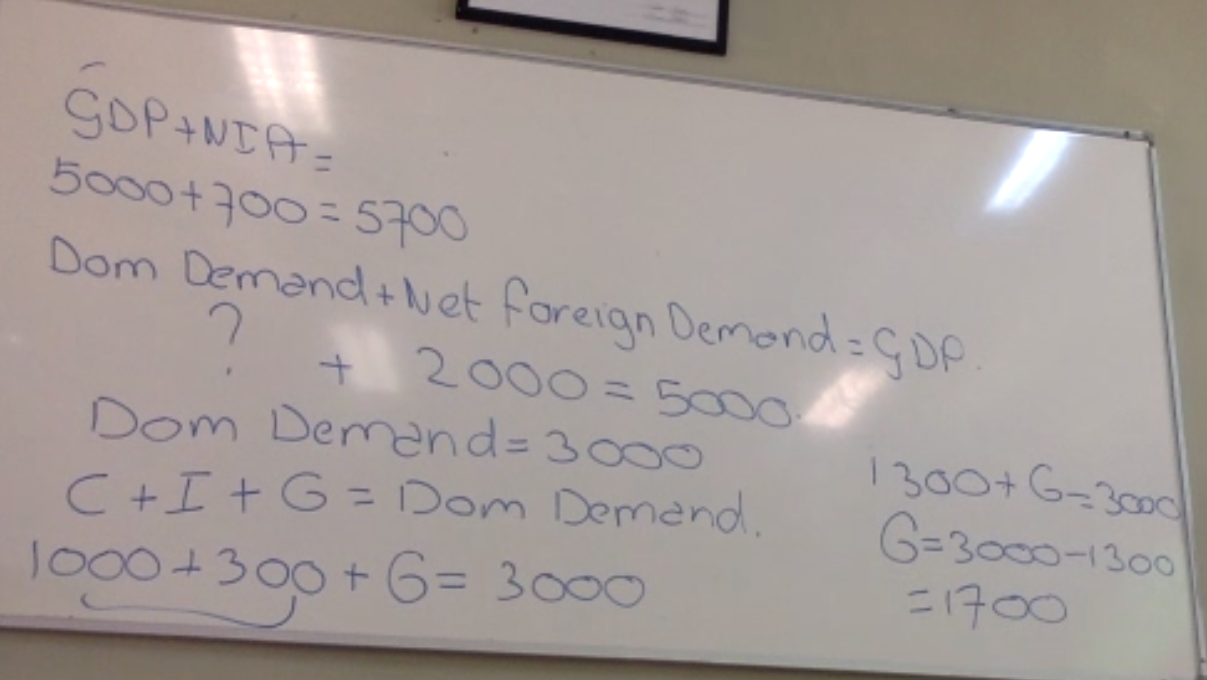 GDP+NIA=
5000+700=5700
Dom Demand+Net foreign Demand=GDP.
?
+ 2000=5000.
Dom Demand=3000
C+I+G=Dom Demand.
1000+300+G=3000
1300+G=3000
G=3000-1300
=1700